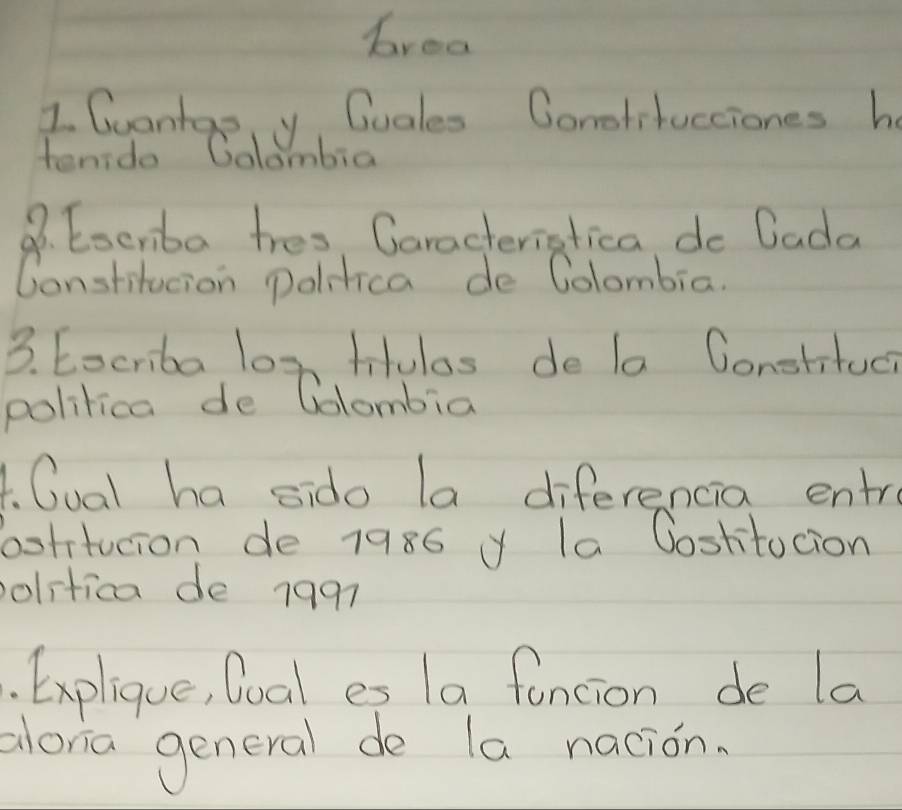 Tarea
1. Cuantas y Cuales Constitucciones ha
tenido Colombia
2. Escriba tres Caracteristica de Cada
Constitucion politica de Colombia.
3. Escriba los titulos de la Constituci
politica de Colombia
4. Cual ha sido la diferencia entre
ostitucion de 1986 y la Costitucion
politica de 1991
. Explique, Cual es la funcion de la
aloria general de la nación.